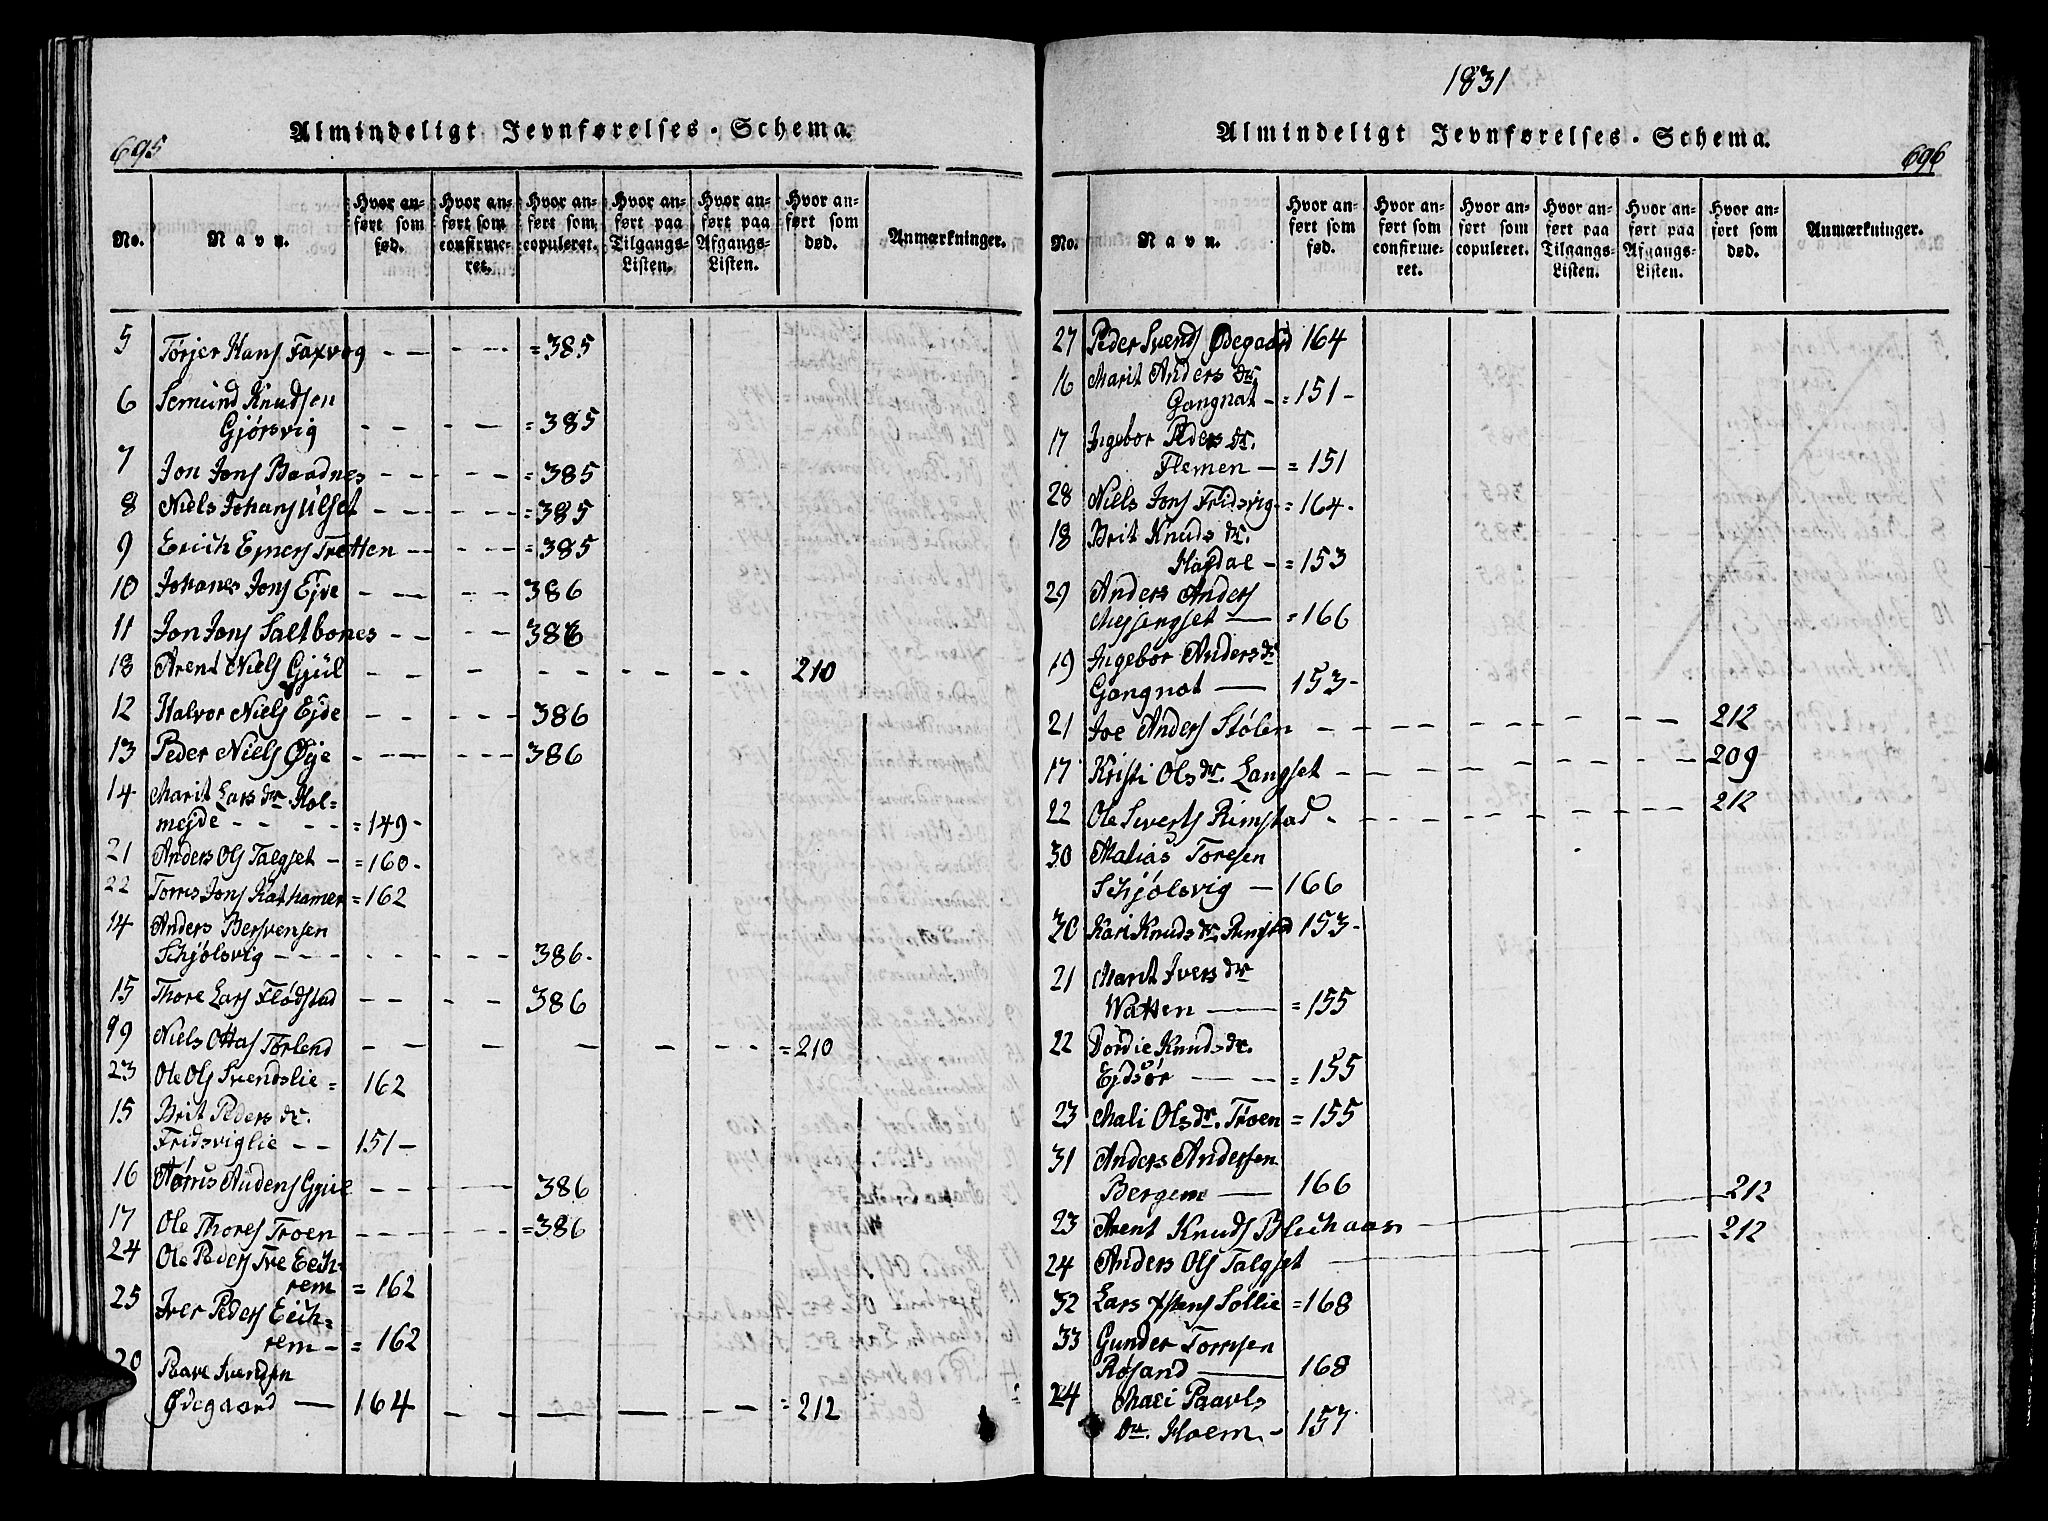 695
Almindeligt Jevnførelses-Schema.
No. Navn. Hvor anført som fød. Hvor anført som confirmeret. Hvor anført som copuleret. Hvor anført paa Tilgangs-Listen. Hvor anført paa Afgangs-Listen. Hvor anført som død. Anmærkninger.
5 Torjer Hans Faxvog - - - - = 385
6 Semund Knudsen
Gjørsvig - - - - = 385
7 Jon Jons Baadnes - - - = 385
8 Niels Johans Ulset - - - - = 385
9 Erich Ejners Tretten - - - = 385
10 Johanes Jons Ejde - - - - 386
11 Jon Jons Saltbones - - - - 386
18 Arent Niels Gjül - - - - - - - - 210
12 Halvor Niels Ejde - - - - 386
13 Peder Niels Øye - - - - 386
14 Marit Lars dr. Hol=
mejde - - - - = 149 -
21 Anders Ols Talgset - = 160 -
22 Torris Jons Rathamer = 162
14 Anders Bersvensen
Schjølsvig - - - - - - 386 -
15 Thore Lars Flødstad - - - - 386
99 Niels Ottas Torlend - - - - - - - = 210
23 Ole Ols Svendslie = 162
15 Brit Peders dr.
Fridsviglie - - 151 -
16 Tørris Andens Gjül - - - - 386
17 Ole Thores Troen - - - - = 386
24 Ole Peders Tre Eich=
rem = 162
25 Iver Peders Eich=
rem - = 162
20 Paave Svendsen
Ødegaard - 164 - - - - - - = 212
1831
Almindeligt Jevnførelses-Schema.
696
No. Navn. Hvor anført som fød. Hvor anført som confirmeret. Hvor anført som copuleret. Hvor anført paa Tilgangs-Listen. Hvor anført paa Afgangs-Listen. Hvor anført som død. Anmærkninger.
27 Peder Svends Ødegaard 164
16 Marit Anders dr.
Gangnat - = 151 -
17 Ingebor Peders dr.
Flemen - = 151
28 Niels Jons Fridsvig = 164 -
18 Brit Knuds dr.
Hagdal - = 153
29 Anders Anders
Mejsingset - = 166
19 Ingebor Anders dr
Gangnat - 153 -
21 Joe Anders Stølen - - - - - - - - 212
17 Kristi Ols dr. Langset - - - - - - - - 209
22 Ole Siverts Rimstad - - - - - - - - 212
30 Malias Toresen
Schjølsvig - 166
20 Kari Knuds dr Rimstad 153 -
21 Marit Ivers dr
Watten - = 155
22 Dordie Knuds dr.
Ejdsør - - = 155
23 Mali Ols dr. Troen = 155
31 Anders Andersen
Bergem - 166
23 Arent Knuds Blichaas - 212
24 Anders Ols Talgset - 212
32 Lars Østens Sollie = 168
33 Gunder Torresen
Røsand - 168
24 Mari Paavls
Dr. Hoem - 157